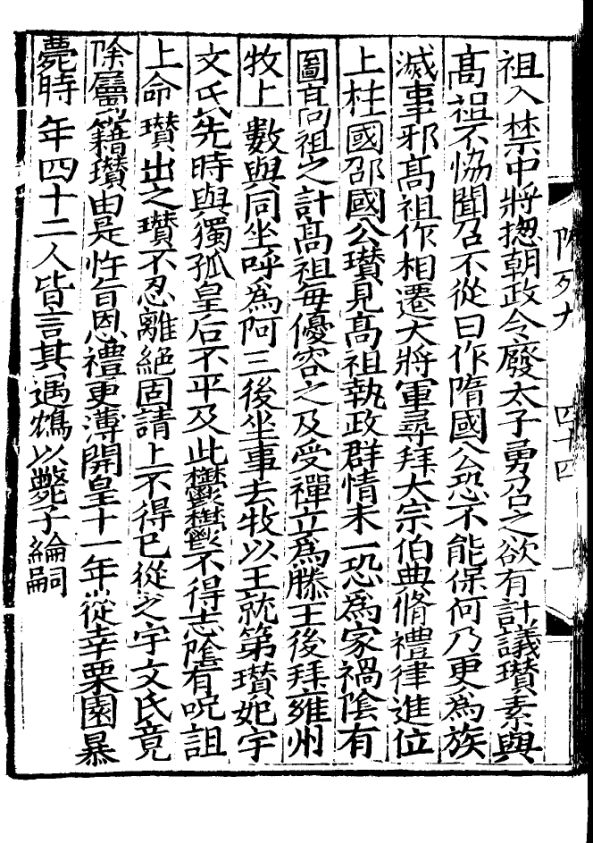 祖入禁中將揔朝政令廢太子勇召之欲有計議瓚素與
髙祖不恊聞召不從曰作隋國公恐不能保何乃更爲族
滅事邪髙祖作相遷大將軍尋拜大宗伯典脩禮律進位
上柱國邵國公瓚見髙祖執政群情未一恐爲家禍隂有
圖髙祖之計髙祖每優容之及受禪立爲滕王後拜雍州
牧上數與同坐呼爲阿三後坐事去牧以王就第瓚妃宇
文氏先時與獨孤皇后不平及此鬱鬱不得志隂有呪詛
上命瓚出之瓚不忍離絕固請上不得已從之宇文氏竟
除屬籍瓚由是忤旨恩禮更薄開皇十一年從幸栗園暴
薨時年四十二人皆言其遇鴆以斃子綸嗣
隋列九
四十四